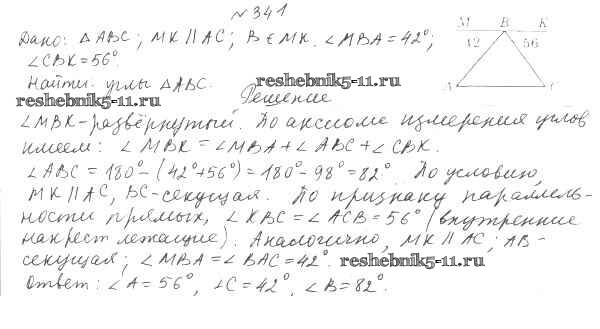 № 341
M B K
Дано: △ABC; MK || AC; B ∈ MK. ∠MBA = 42°;
42 56
∠CBK = 56°.
Найти: углы △ABC. reshebnik5-11.ru
reshebnik5-11.ru Решение
∠MBK - развёрнутый. По аксиоме измерения углов
имеем: ∠MBK = ∠MBA + ∠ABC + ∠CBK.
∠ABC = 180° - (42° + 56°) = 180° - 98° = 82°. По условию,
MK || AC, BC - секущая. По признаку параллель-
ности прямых, ∠KBC = ∠ACB = 56° (внутренние
накрест лежащие). Аналогично, MK || AC; AB -
секущая; ∠MBA = ∠BAC = 42°. reshebnik5-11.ru
Ответ: ∠A = 56°, ∠C = 42°, ∠B = 82°.